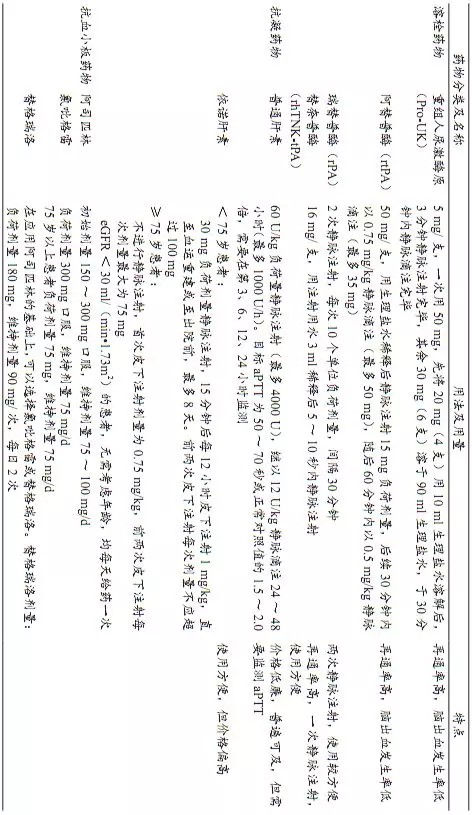 药物分类及名称 用法及用量 特点
溶栓药物
重组人尿激酶原 5 mg/支，一次用 50 mg，先将 20 mg（4 支）用 10 ml 生理盐水溶解后， 再通率高，脑出血发生率低
(Pro-UK) 3 分钟静脉注射完毕，其余 30 mg（6 支）溶于 90 ml 生理盐水，于 30 分
钟内静脉滴注完毕
阿替普酶（rtPA） 50 mg/支，用生理盐水稀释后静脉注射 15 mg 负荷剂量，后续 30 分钟内 再通率高，脑出血发生率低
以 0.75 mg/kg 静脉滴注（最多 50 mg），随后 60 分钟内以 0.5 mg/kg 静脉
滴注（最多 35 mg）
瑞替普酶（rPA） 2 次静脉注射，每次 10 个单位负荷剂量，间隔 30 分钟 两次静脉注射，使用较方便
替奈普酶 16 mg/支，用注射用水 3 ml 稀释后 5～10 秒内静脉注射 再通率高，一次静脉注射，
(rhTNK-tPA) 使用方便
抗凝药物
普通肝素 60 U/kg 负荷量静脉注射（最多 4000 U），继以 12 U/kg 静脉滴注 24～48 价格低廉，普遍可及，但需
小时（最多 1000 U/h）。目标 aPTT 为 50～70 秒或正常对照值的 1.5～2.0 要监测 aPTT
倍，需要在第 3、6、12、24 小时监测
依诺肝素 ＜75 岁患者： 使用方便，但价格偏高
30 mg 负荷剂量静脉注射，15 分钟后每 12 小时皮下注射 1 mg/kg，直
至血运重建或至出院前，最多 8 天。前两次皮下注射每次剂量不应超
过 100 mg
≥75 岁患者：
不进行静脉注射，首次皮下注射剂量为 0.75 mg/kg，前两次皮下注射每
次剂量最大为 75 mg
eGFR＜30 ml/（min•1.73m²）的患者，无需考虑年龄，均每天给药一次
抗血小板药物
阿司匹林 初始剂量 150～300 mg 口服，维持剂量 75～100 mg/d
氯吡格雷 负荷剂量 300 mg 口服，维持剂量 75 mg/d
75 岁以上患者负荷剂量 75 mg，维持剂量 75 mg/d
替格瑞洛 在应用阿司匹林的基础上，可以选择氯吡格雷或替格瑞洛。替格瑞洛剂量：
负荷剂量 180 mg，维持剂量 90 mg/次，每日 2 次